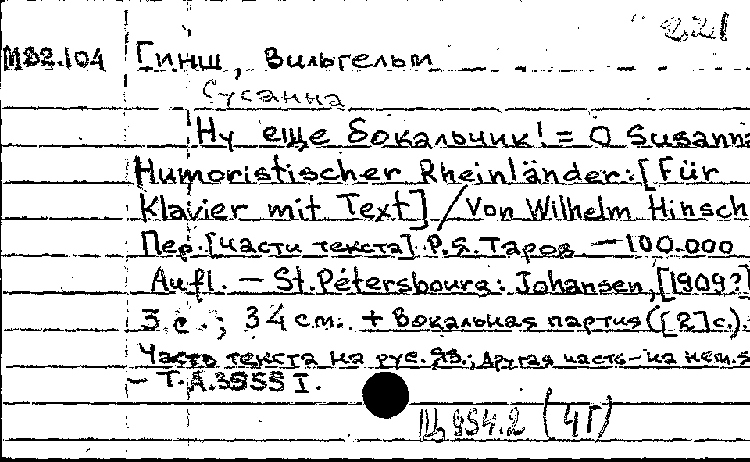 221
М82.104 Гинш, Вильгельм
Сусанна
Ну еще бокальчик! = O Susanna
Humoristischer Rheinländer: [Für
Klavier mit Text] / Von Wilhelm Hinsch
Пер. [части текста] Р.Я. Таров — 100.000
Aufl. — St. Pétersbourg: Johansen, [1909?]
3 с.; 34 см. + Вокальная партия ([2]с.).
Часть текста на рус. яз.; другая часть – на нем. я
— Т.А.3955 I.
854.2 (4Г)